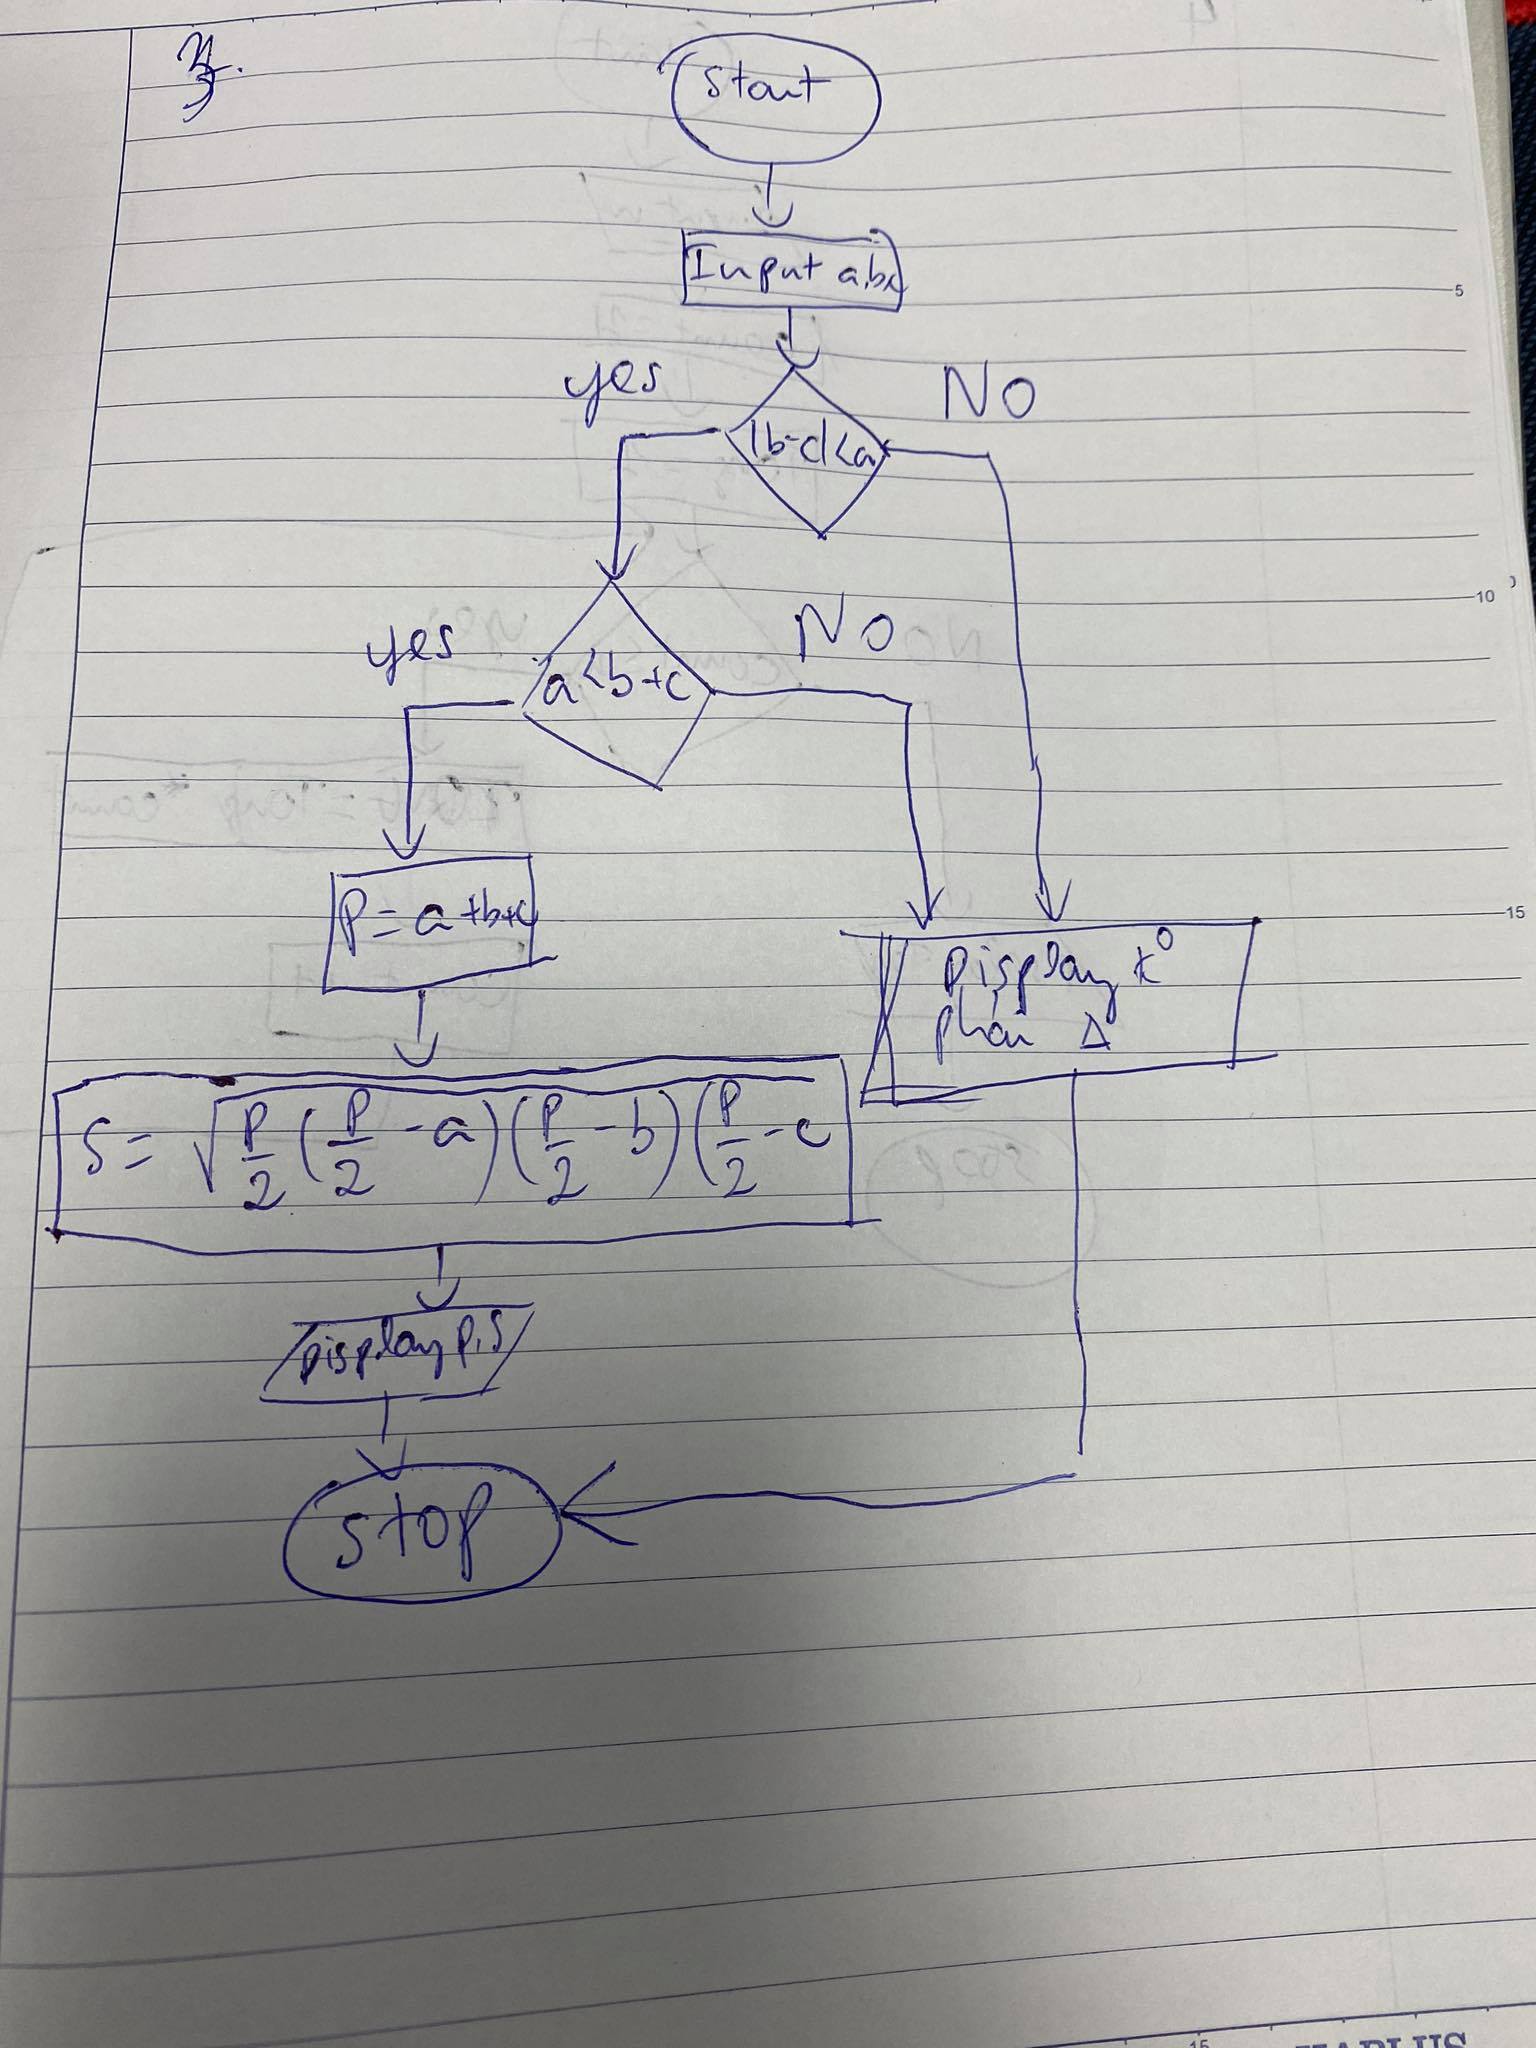 Start
Input a,b,c
yes
NO
|b-c|<a
yes
NO
a<b+c
P=a+b+c
Display k⁰
phải Δ
S=√P/2(P/2-a)(P/2-b)(P/2-c
Display P,S
stop
5
10
15
15